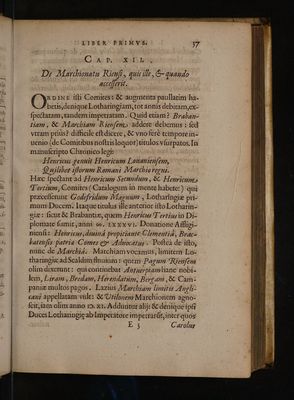 LIBER PRIMVS. 37
CAP. XII.
De Marchionatu Riensi, quis ille, & quando
accesserit.
ORDINE isti Comites: & augmenta paullatim ha-
betis, denique Lotharingiam, tot annis debitam, ex-
spectatam, tandem impetratam. Quid etiam? Braban-
tiam, & Marchiam Riensem, addere debemus: sed
vtram prius? difficile est dicere, & vno ferè tempore in-
uenio (de Comitibus nostris loquor) titulos vsurpatos. In
manuscripto Chronico legi:
Henricus genuit Henricum Louaniensem,
Qui libet istorum Romani Marchio regni.
Hæc spectant ad Henricum Secundum, & Henricum
Tertium, Comites (Catalogum in mente habete) qui
præcesserunt Godefridum Magnum, Lotharingiæ pri-
mum Ducem. Itaque titulus ille anterior isto Lotharin-
giæ: sicut & Brabantiæ, quem Henricus Tertius in Di-
plomate sumit, anno
M. LXXXVI. Donatione Affligi-
niensi: Henricus, diuinâ propitiante Clementiâ, Brac-
batensis patriæ Comes & Aduocatus. Postea de isto,
nunc de Marchiâ. Marchiam vocamus, limitem Lo-
tharingiæ ad Scaldim fluuium: quem Pagum Riensem
olim dixerunt: qui continebat Antuerpiam hanc nobi-
lem, Liram, Bredam, Herendatum, Bergam, & Cam-
paniæ multos pagos. Lazius Marchiam limitis Angli-
cani appellatam vult: & Vtilonem Marchionem agno-
scit, iam olim anno IX. XI. Adduntur alij: & denique ipsi
Duces Lotharingiæ ab Imperatore impetrarunt, inter quos
E 3 Carolus